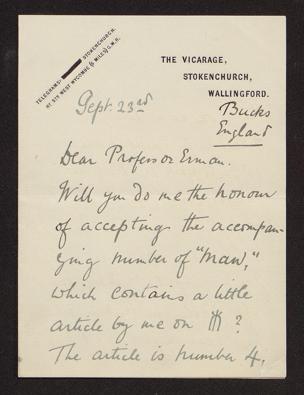 TELEGRAMS: STOKENCHURCH.
RY STN WEST WYCOMBE 5 MILES G.W.R.
THE VICARAGE,
STOKENCHURCH,
WALLINGFORD.
Bucks
England
Sept. 23rd
Dear Professor Erman.
Will you do me the honour
of accepting the accompan-
ying number of "Man,"
which contains a little
article by me on 𓄟 ?
The article is number 4.